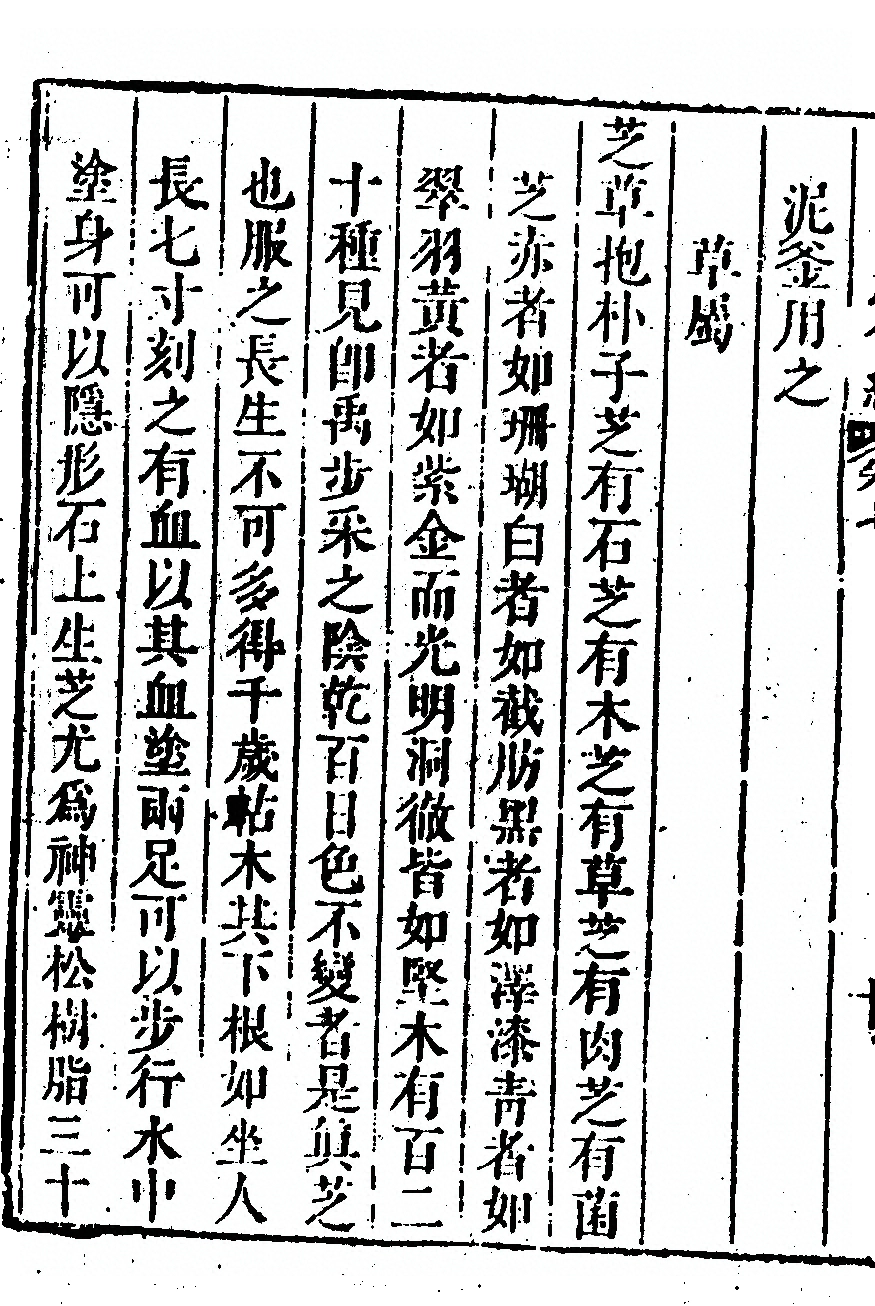 泥釜用之
草屬
芝草抱朴子芝有石芝有木芝有草芝有肉芝有菌
芝赤者如珊瑚白者如截肪黒者如澤漆青者如
翠羽黃者如紫金而光明洞徹皆如堅木有百二
十種見即禹步采之陰乾百日色不變者是眞芝
也服之長生不可多得千歲枯木其下根如坐人
長七寸刻之有血以其血塗兩足可以步行水中
塗身可以隱形石上生芝尤爲神靈松樹脂三十